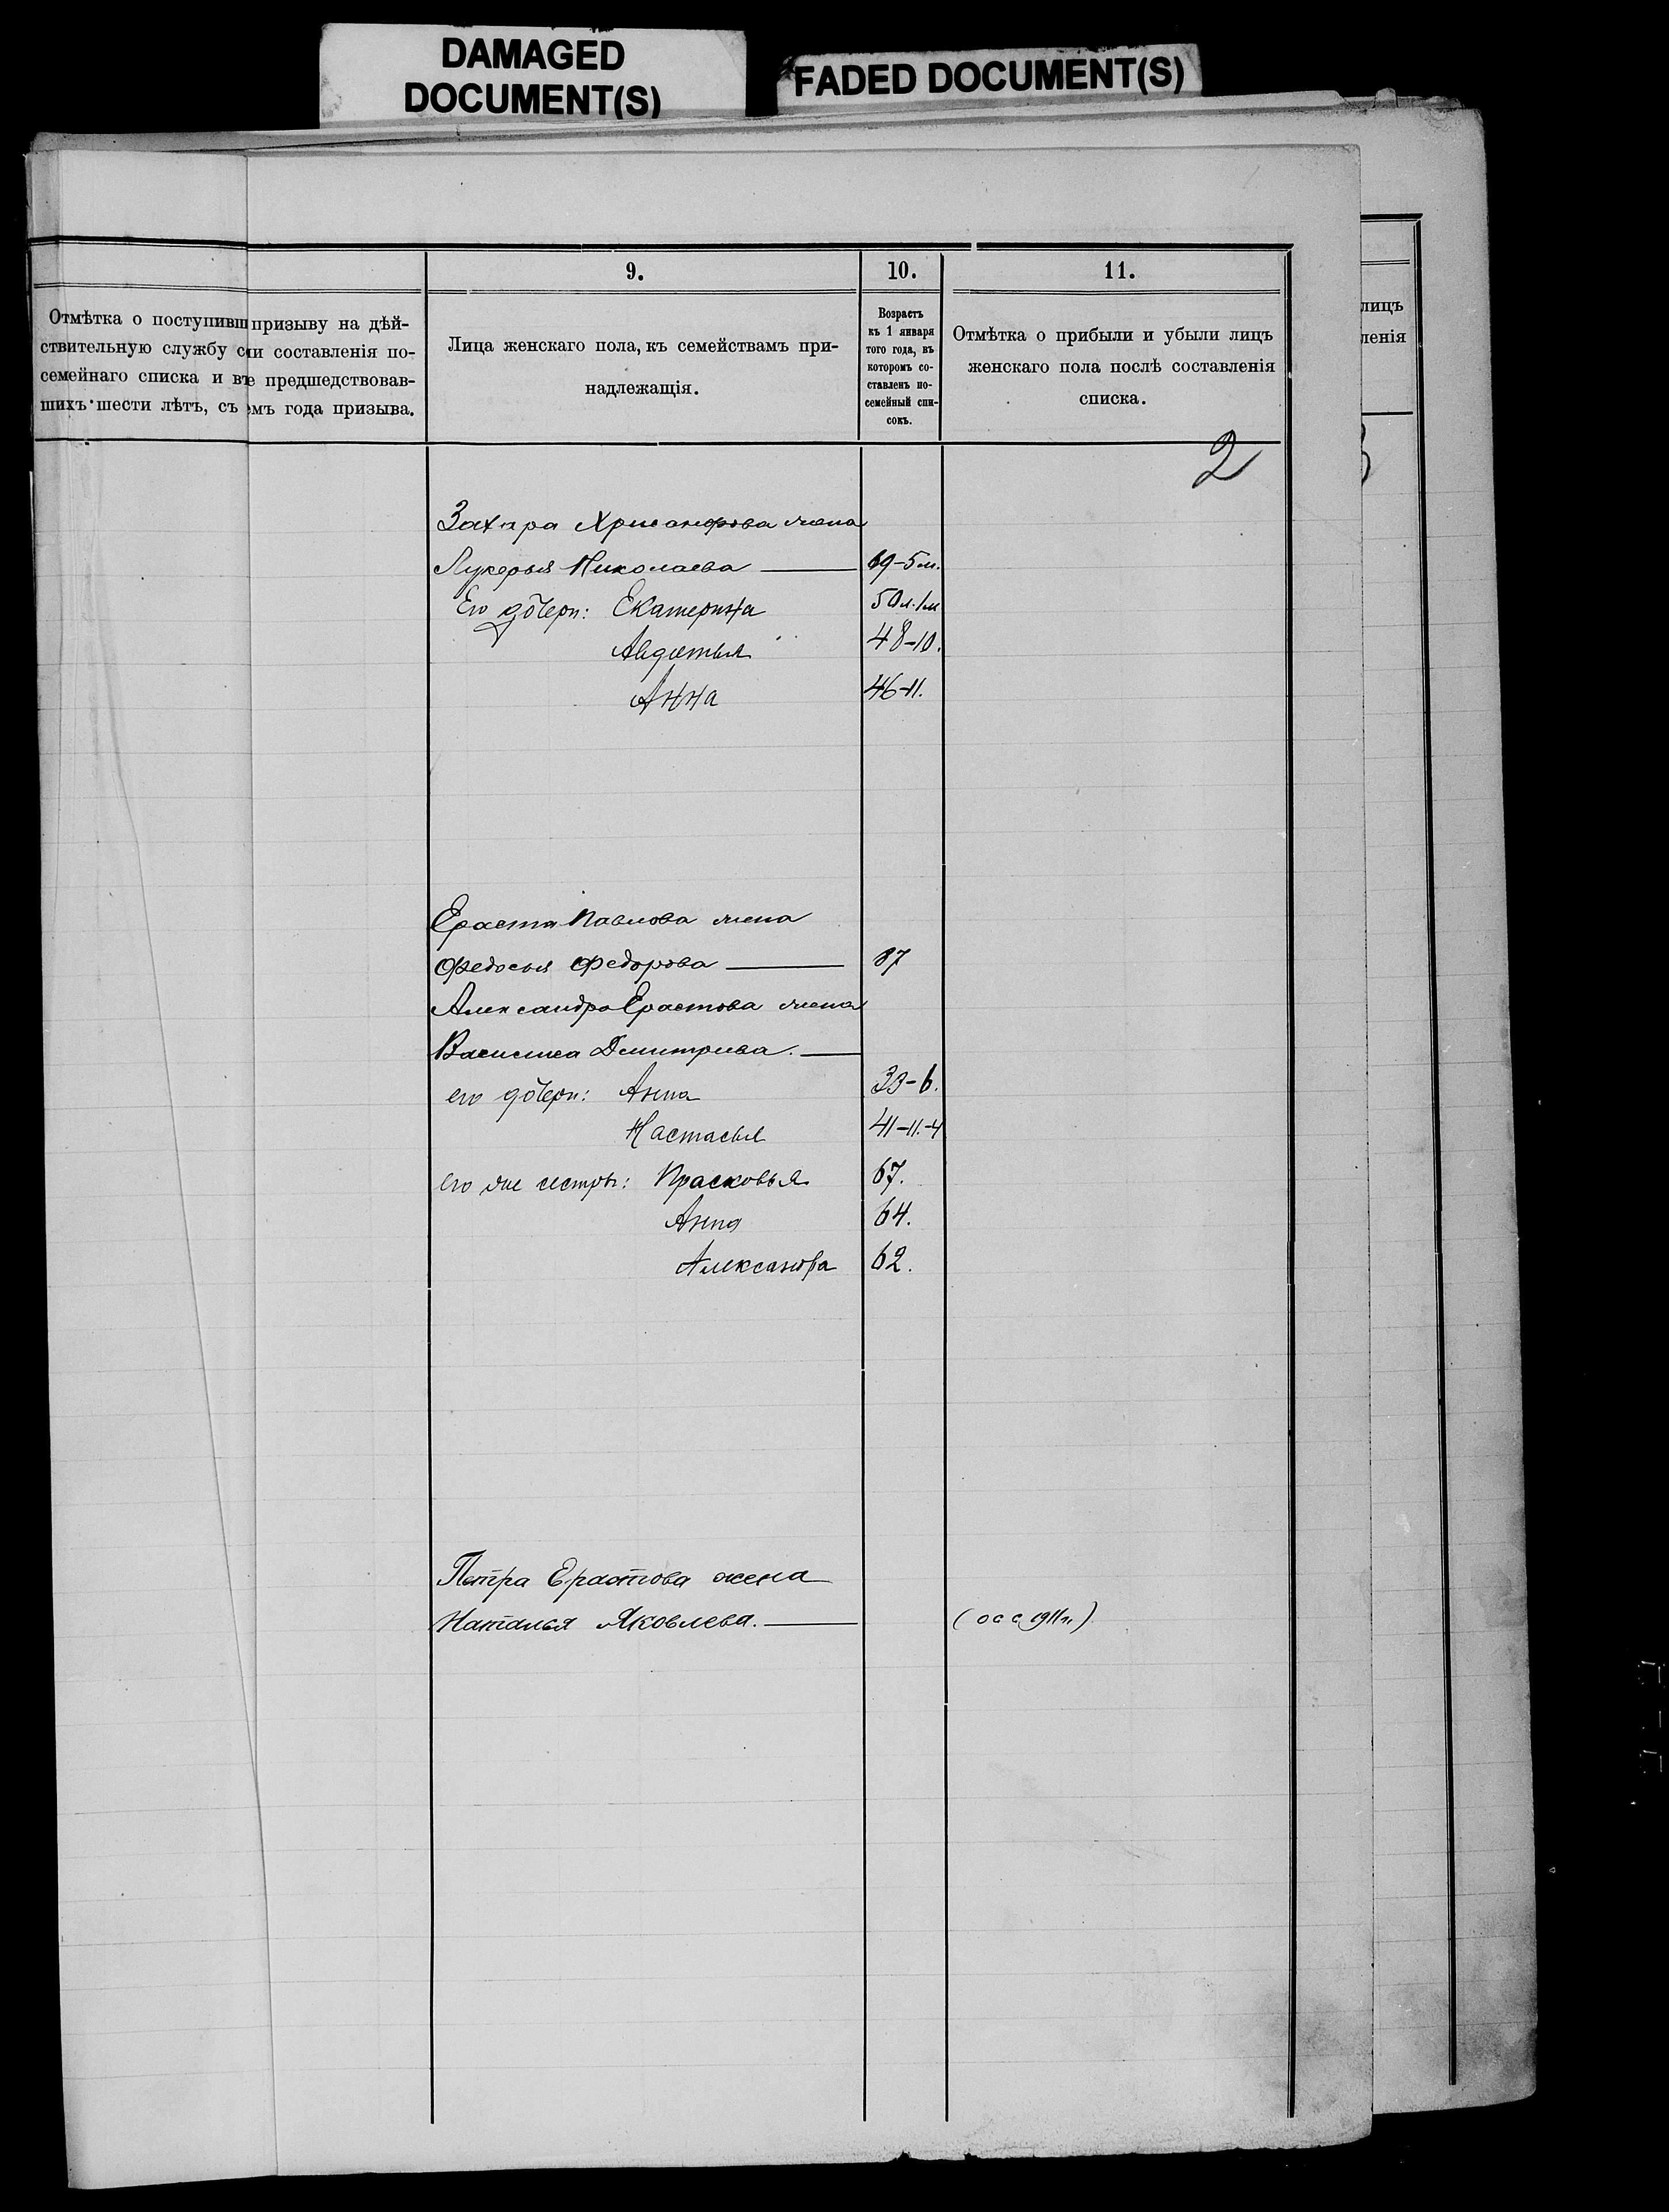 DAMAGED
DOCUMENT(S)
FADED DOCUMENT(S)
9.
10.
11.
Отмѣтка о поступивш призыву на дѣй-
ствительную службу с и составленія по-
семейнаго списка и въ е предшедствовав-
шихъ шести лѣтъ, съ мъ года призыва.
Лица женскаго пола, къ семействамъ при-
надлежащія.
Возрастъ
къ 1 января
того года, въ
которомъ со-
ставленъ по-
семейный спи-
сокъ.
Отмѣтка о прибыли и убыли лицъ
женскаго пола послѣ составленія
списка.
лицъ
ленія
2
Захара Хрисанфова жена
Лукерья Николаева 69-5 м.
Его дочери: Екатерина 50 л. 1 м
Авдотья 48-10.
Анна 46-11.
Ераста Павлова жена
Федосья Федорова 87
Александра Ерастова жена
Василиса Дмитриева.
его дочери: Анна 33-6.
Настасья 41-11.-4
его же сестры: Прасковья 67.
Анна 64.
Александра 62.
Петра Ерастова жена
Наталья Яковлева. (о с с 1911 г.)